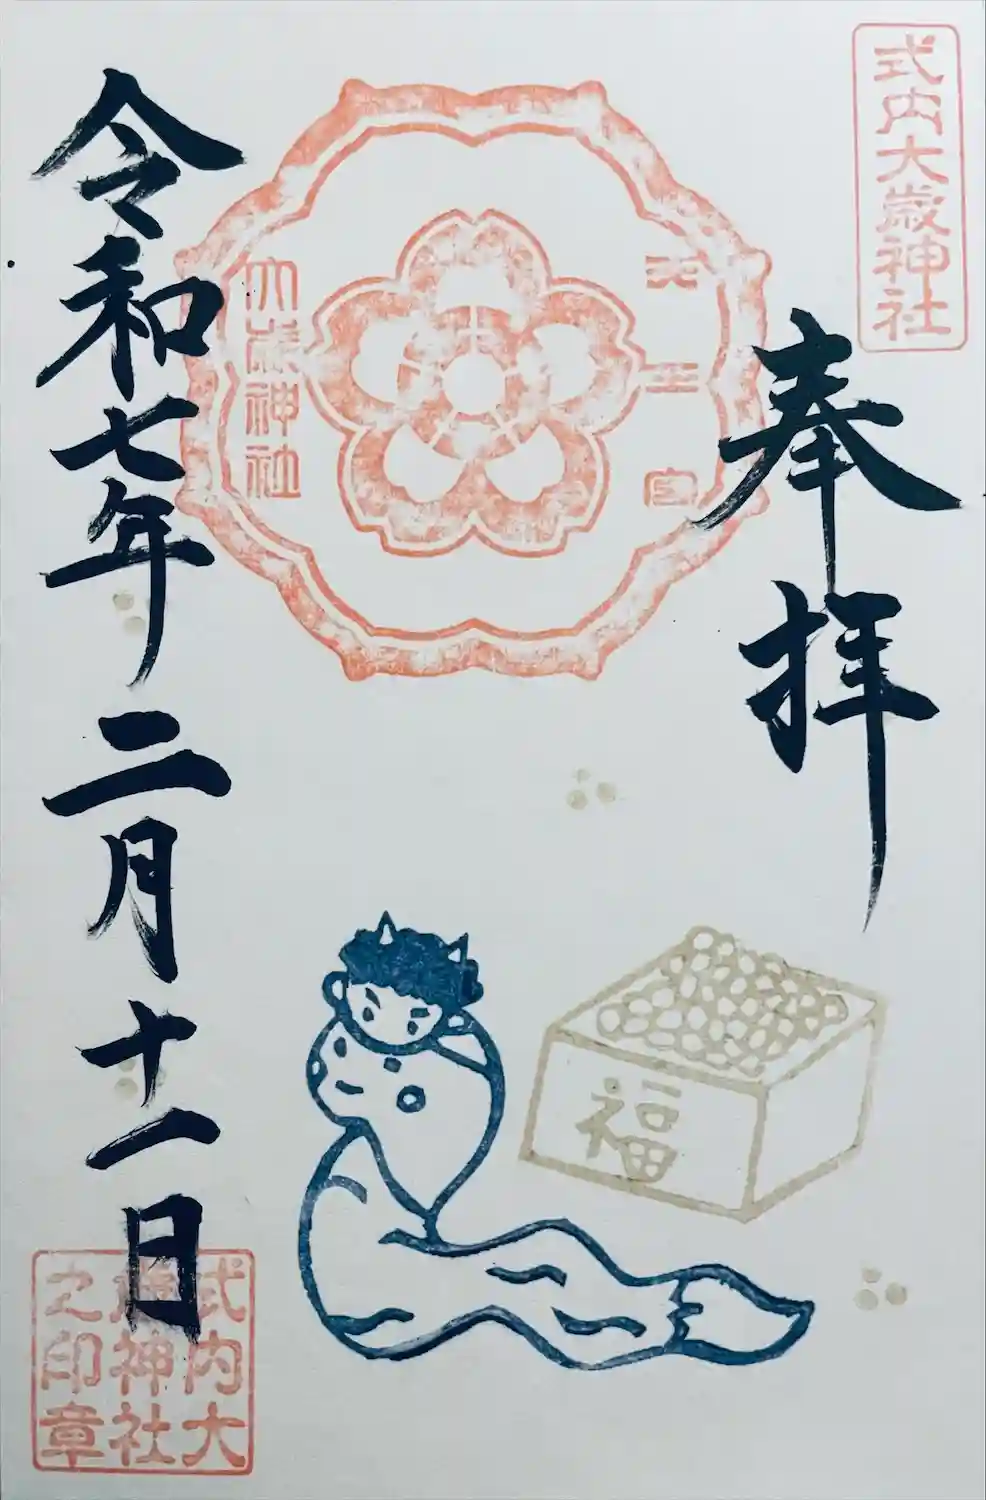 式内大歳神社
奉拝
大王自
大歳神社
福
令和七年二月十一日
式内大
歳神社
之印章